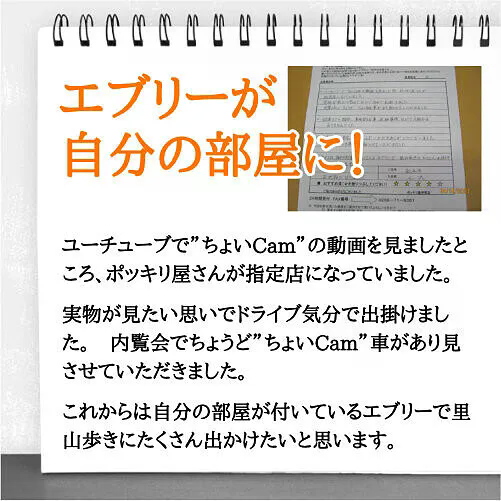 エブリーが
自分の部屋に!
ユーチューブで”ちょいCam”の動画を見ましたと
ころ、ポッキリ屋さんが指定店になっていました。
実物が見たい思いでドライブ気分で出掛けまし
た。　内覧会でちょうど”ちょいCam”車があり見
させていただきました。
これからは自分の部屋が付いているエブリーで里
山歩きにたくさん出かけたいと思います。